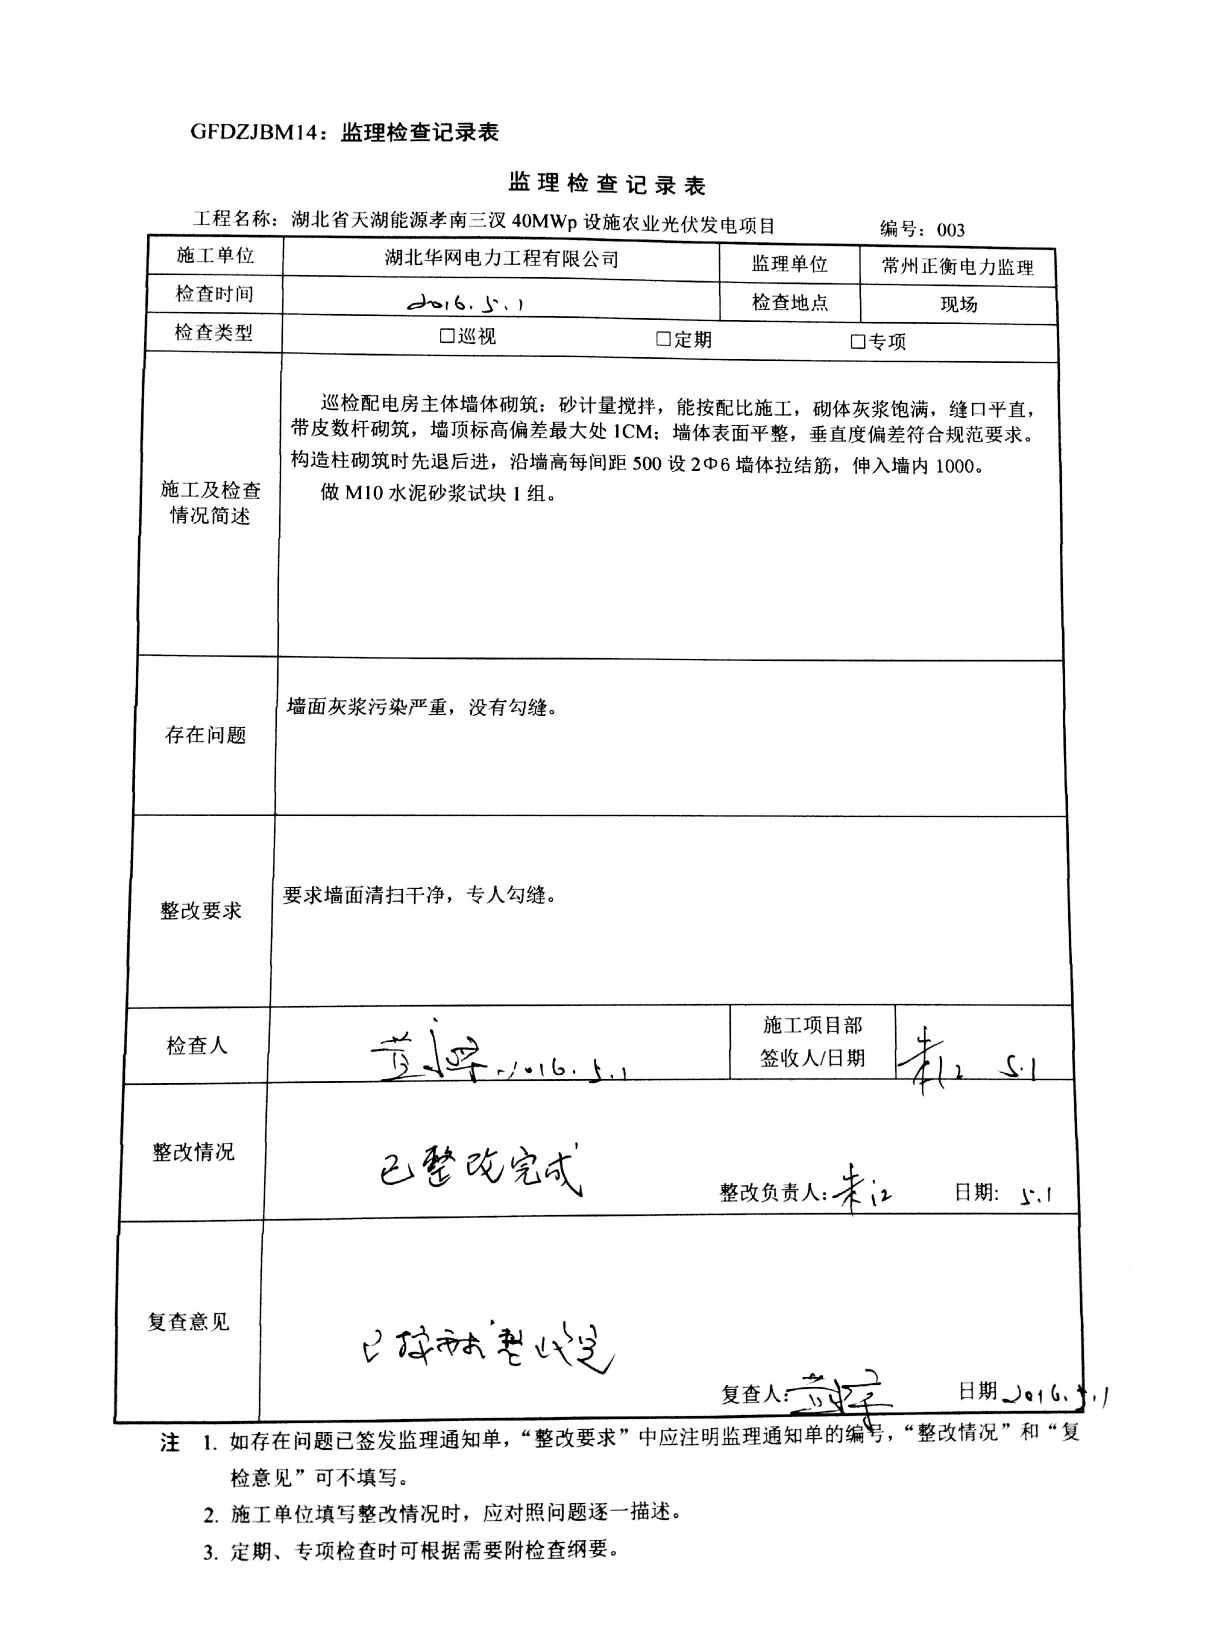 GFDZJBM14：监理检查记录表
监理检查记录表
工程名称：湖北省天湖能源孝南三汊 40MWp 设施农业光伏发电项目 编号：003
施工单位 湖北华网电力工程有限公司 监理单位 常州正衡电力监理
检查时间 2016.5.1 检查地点 现场
检查类型 □巡视 □定期 □专项
巡检配电房主体墙体砌筑：砂计量搅拌，能按配比施工，砌体灰浆饱满，缝口平直，
带皮数杆砌筑，墙顶标高偏差最大处 1CM；墙体表面平整，垂直度偏差符合规范要求。
构造柱砌筑时先退后进，沿墙高每间距 500 设 2Φ6 墙体拉结筋，伸入墙内 1000。
做 M10 水泥砂浆试块 1 组。
施工及检查
情况简述
墙面灰浆污染严重，没有勾缝。
存在问题
要求墙面清扫干净，专人勾缝。
整改要求
检查人 2016.5.1 施工项目部
签收人/日期 朱江 5.1
整改情况 已整改完成
整改负责人：朱江 日期: 5.1
复查意见 已按要求整改完
复查人: 日期 2016.5.1
注 1. 如存在问题已签发监理通知单，“整改要求”中应注明监理通知单的编号，“整改情况”和“复
检意见”可不填写。
2. 施工单位填写整改情况时，应对照问题逐一描述。
3. 定期、专项检查时可根据需要附检查纲要。